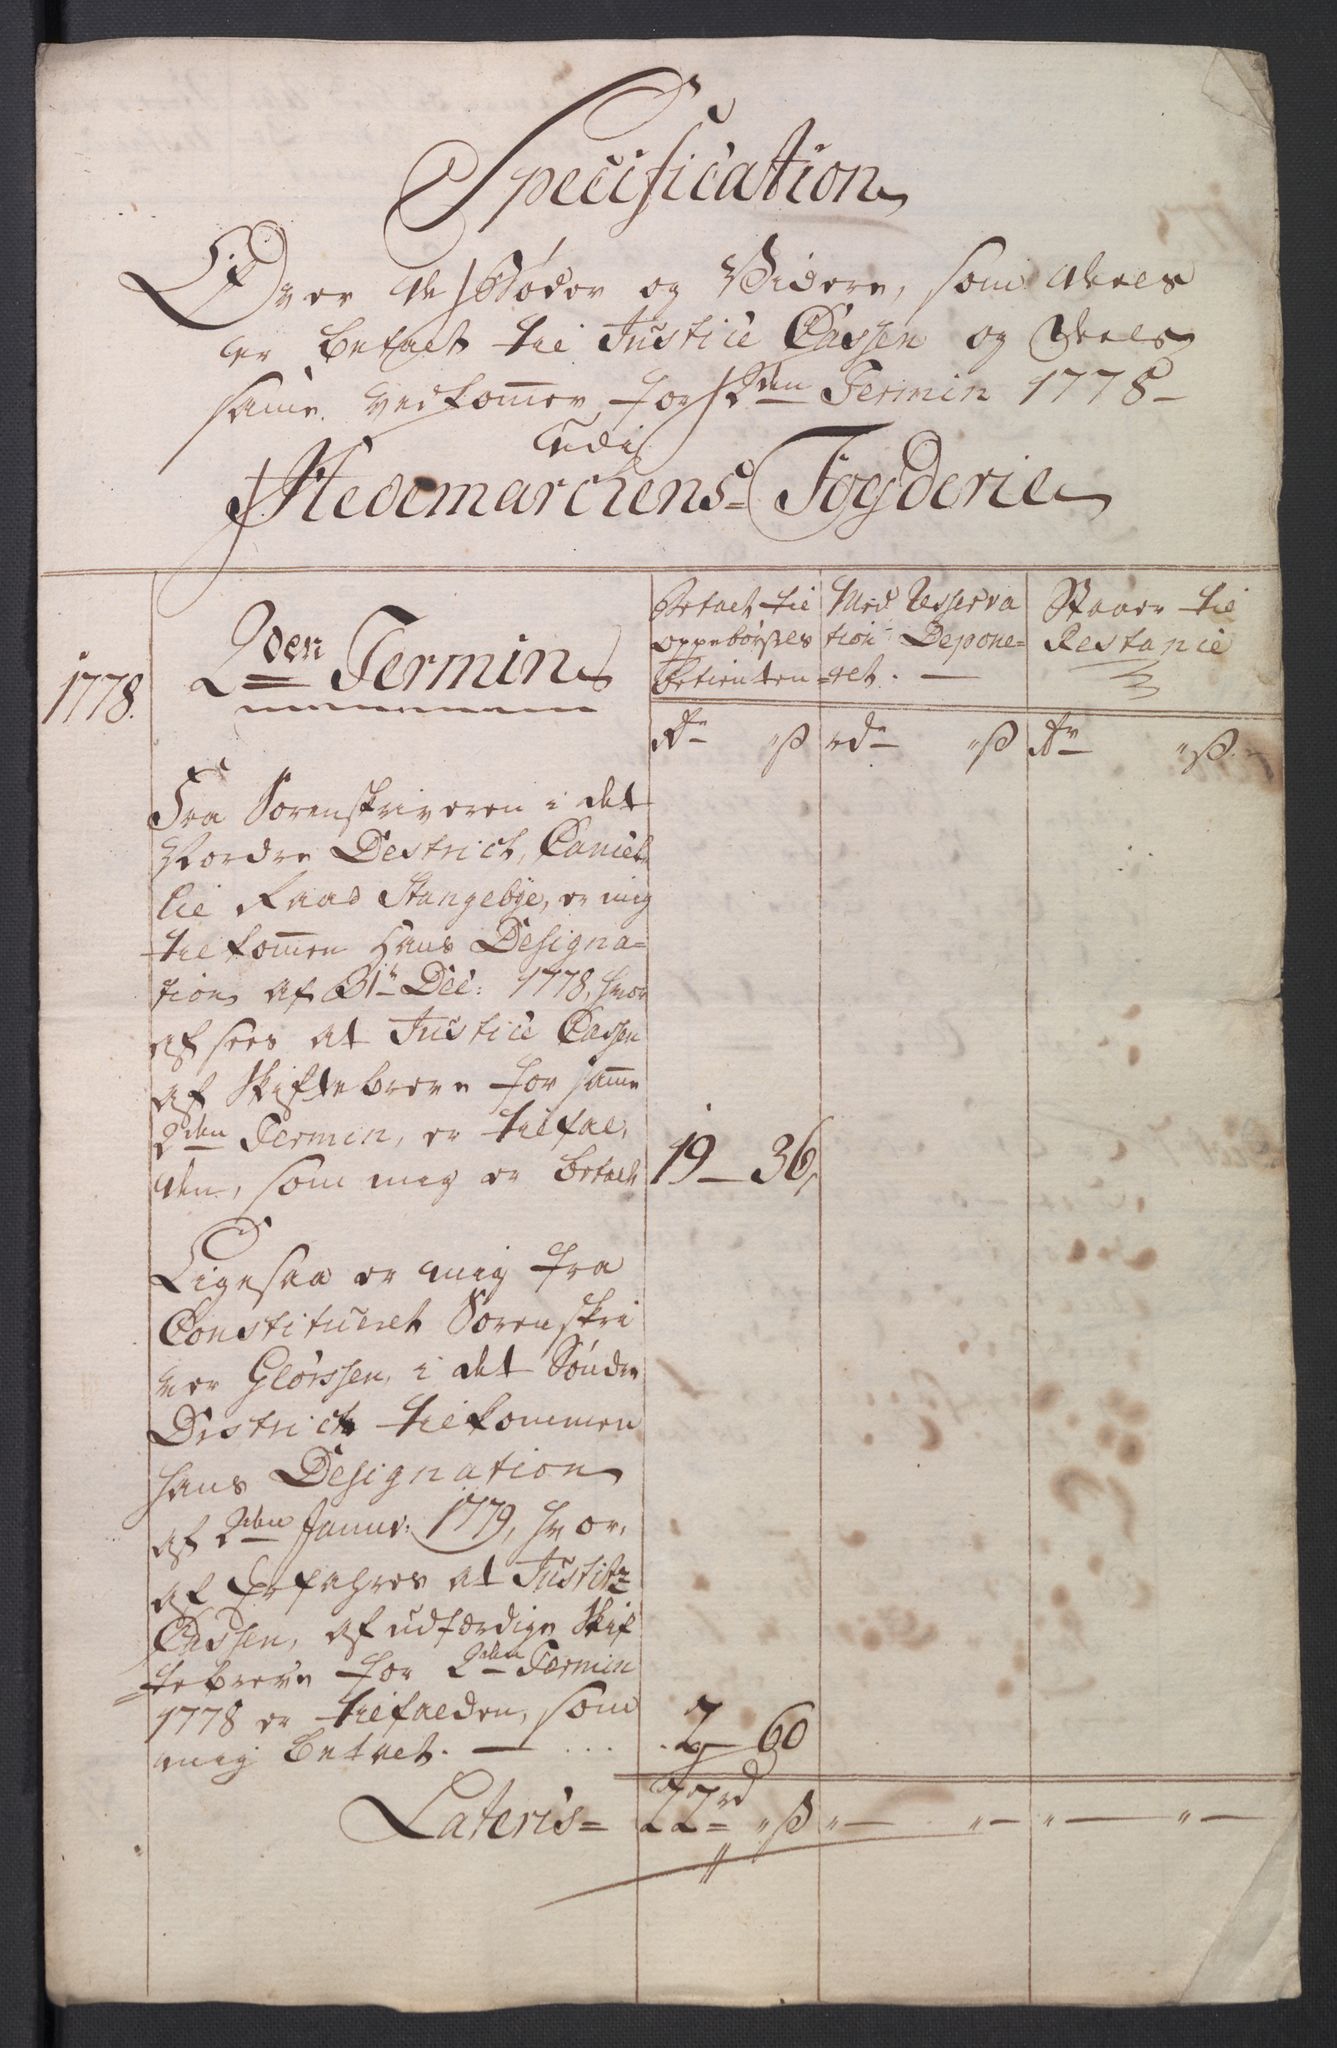 Specification
Over de Bøder og Videre, som deels
er betalt til Justice Cassen og deels
samme vedkommer, for 2den Termin 1778
udi
Hedemarchens Fogderie
1778.
2den Termin
Betalt til
oppebørsels
betienten
Med Resserva
tion Depone=
=ret.
Staaer til
Restance
Rdr " ß rdr " ß Rdr " ß
Fra Sorenskriveren i det
Nordre Destrict, Cancel=
lie Raad Stangebye, er mig
tilkommen Hans Designa=
tion af 31te Dec: 1778, hvor
af sees at Justice Cassen
af Skiftebreve for samme
2den Termin, er tilfal,
den, som mig er betalt 19 – 36
Ligesaa er mig fra
Constitueret Sorenskri
ver Glørssen, i det Søndre
District tilkommen
hans Designation
af 2den Janur: 1779, hvor,
af Erfahres at Justitz
Cassen, af udfærdige Skif
=tebreve for 2den Termin
1778 er tilfalden, som
mig betalt. — . . . . 2 – 60
Lateris = 22rd " ß " — " — " — " —